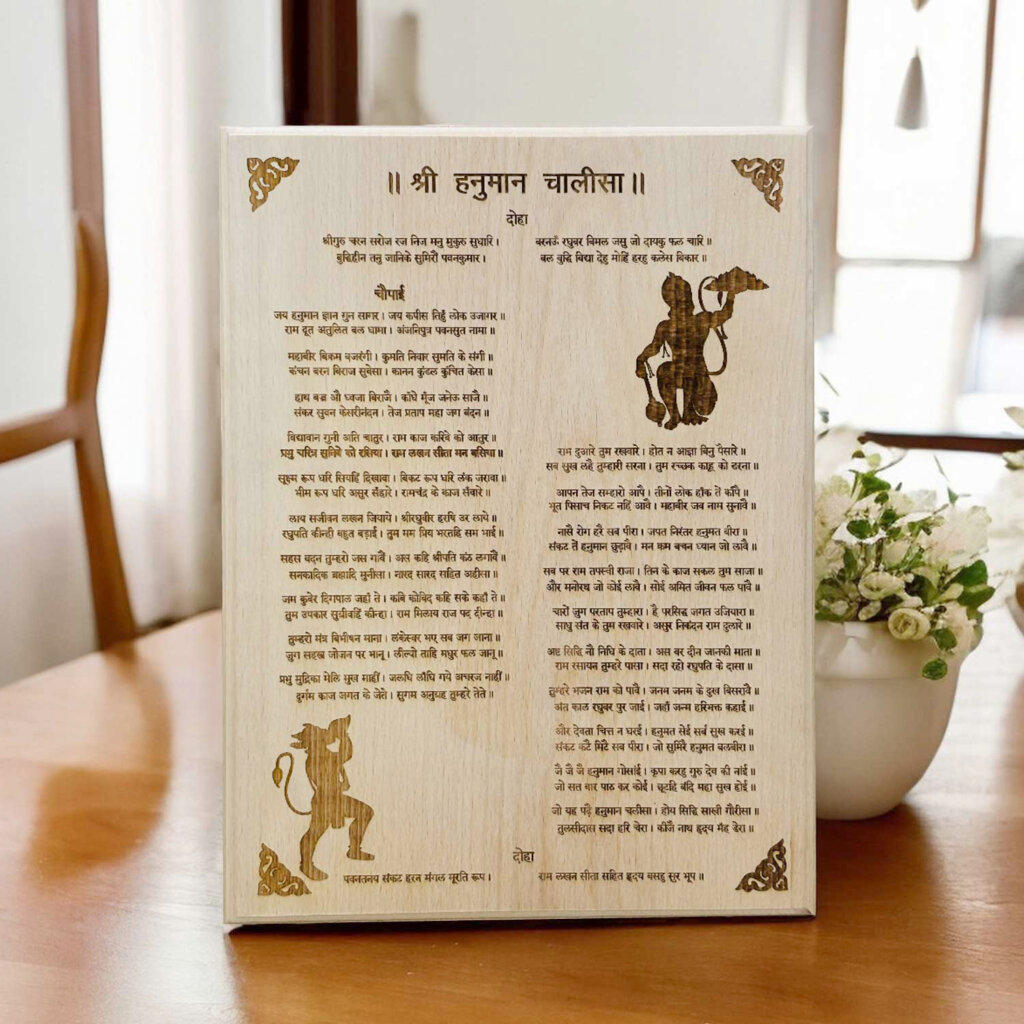 ॥ श्री हनुमान चालीसा ॥
दोहा
श्रीगुरु चरन सरोज रज निज मनु मुकुरु सुधारि ।
बरनऊँ रघुबर बिमल जसु जो दायकु फल चारि ॥
बुद्धिहीन तनु जानिके सुमिरौं पवनकुमार ।
बल बुद्धि बिद्या देहु मोहिं हरहु कलेस बिकार ॥
चौपाई
जय हनुमान ज्ञान गुन सागर । जय कपीस तिहुँ लोक उजागर ॥
राम दूत अतुलित बल धामा । अंजनिपुत्र पवनसुत नामा ॥
महाबीर बिक्रम बजरंगी । कुमति निवार सुमति के संगी ॥
कंचन बरन बिराज सुबेसा । कानन कुंडल कुंचित केसा ॥
हाथ बज्र औ ध्वजा बिराजै । काँधे मूँज जनेऊ साजै ॥
संकर सुवन केसरीनंदन । तेज प्रताप महा जग बंदन ॥
विद्यावान गुनी अति चातुर । राम काज करिबे को आतुर ॥
प्रभु चरित्र सुनिबे को रसिया । राम लखन सीता मन बसिया ॥
सूक्ष्म रूप धरि सियहिं दिखावा । बिकट रूप धरि लंक जरावा ॥
भीम रूप धरि असुर सँहारे । रामचंद्र के काज सँवारे ॥
लाय सजीवन लखन जियाये । श्रीरघुबीर हरषि उर लाये ॥
रघुपति कीन्ही बहुत बड़ाई । तुम मम प्रिय भरतहि सम भाई ॥
सहस बदन तुम्हरो जस गावैं । अस कहि श्रीपति कंठ लगावैं ॥
सनकादिक ब्रह्मादि मुनीसा । नारद सारद सहित अहीसा ॥
जम कुबेर दिगपाल जहाँ ते । कबि कोबिद कहि सके कहाँ ते ॥
तुम उपकार सुग्रीवहिं कीन्हा । राम मिलाय राज पद दीन्हा ॥
तुम्हरो मंत्र बिभीषन माना । लंकेस्वर भए सब जग जाना ॥
जुग सहस्र जोजन पर भानू । लील्यो ताहि मधुर फल जानू ॥
प्रभु मुद्रिका मेलि मुख माहीं । जलधि लाँघि गये अचरज नाहीं ॥
दुर्गम काज जगत के जेते । सुगम अनुग्रह तुम्हरे तेते ॥
राम दुआरे तुम रखवारे । होत न आज्ञा बिनु पैसारे ॥
सब सुख लहै तुम्हारी सरना । तुम रच्छक काहू को डरना ॥
आपन तेज सम्हारो आपै । तीनों लोक हाँक तें काँपै ॥
भूत पिसाच निकट नहिं आवै । महाबीर जब नाम सुनावै ॥
नासै रोग हरै सब पीरा । जपत निरंतर हनुमत बीरा ॥
संकट तें हनुमान छुड़ावै । मन क्रम बचन ध्यान जो लावै ॥
सब पर राम तपस्वी राजा । तिन के काज सकल तुम साजा ॥
और मनोरथ जो कोई लावै । सोई अमित जीवन फल पावै ॥
चारों जुग परताप तुम्हारा । है परसिद्ध जगत उजियारा ॥
साधु संत के तुम रखवारे । असुर निकंदन राम दुलारे ॥
अष्ट सिद्धि नौ निधि के दाता । अस बर दीन जानकी माता ॥
राम रसायन तुम्हरे पासा । सदा रहो रघुपति के दासा ॥
तुम्हरे भजन राम को पावै । जनम जनम के दुख बिसरावै ॥
अंत काल रघुबर पुर जाई । जहाँ जन्म हरिभक्त कहाई ॥
और देवता चित्त न धरई । हनुमत सेई सर्ब सुख करई ॥
संकट कटै मिटै सब पीरा । जो सुमिरै हनुमत बलबीरा ॥
जै जै जै हनुमान गोसाईं । कृपा करहु गुरु देव की नाईं ॥
जो सत बार पाठ कर कोई । छूटहि बंदि महा सुख होई ॥
जो यह पढ़ै हनुमान चलीसा । होय सिद्धि साखी गौरीसा ॥
तुलसीदास सदा हरि चेरा । कीजै नाथ हृदय मँह डेरा ॥
दोहा
पवनतनय संकट हरन मंगल मूरति रूप ।
राम लखन सीता सहित हृदय बसहु सुर भूप ॥